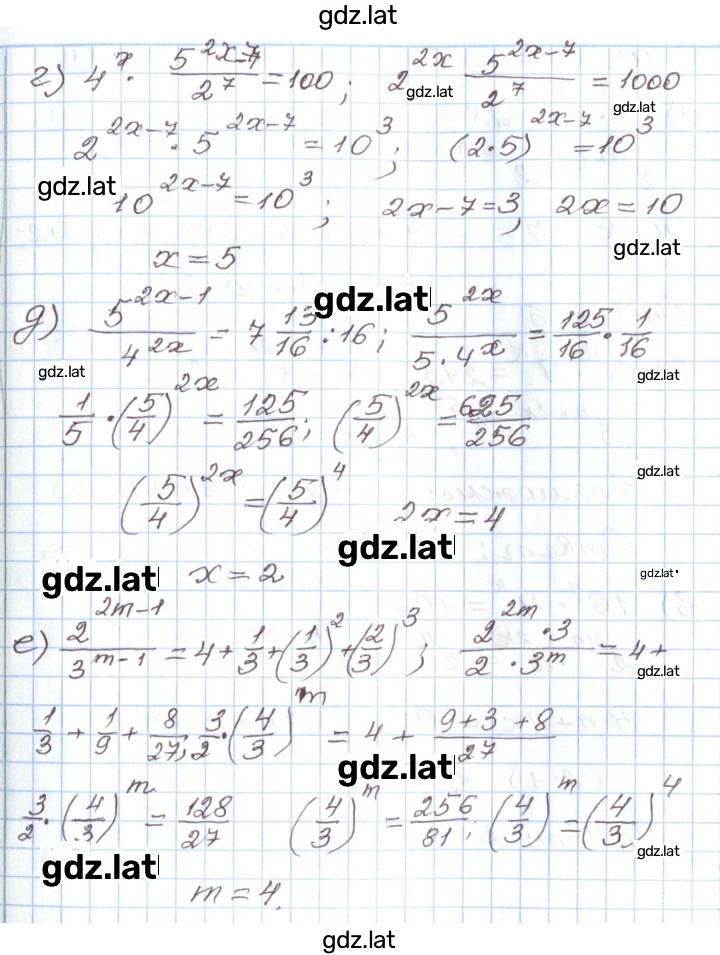 gdz.lat
г) 4^x · 5^(2x-7)/2^7 = 100; 2^(2x) 5^(2x-7)/2^7 = 1000
gdz.lat gdz.lat
2^(2x-7) · 5^(2x-7) = 10^3; (2·5)^(2x-7) = 10^3
gdz.lat
10^(2x-7) = 10^3; 2x-7=3, 2x=10
gdz.lat
x = 5
gdz.lat
д) 5^(2x-1)/4^(2x) = 7 13/16 : 16; 5^(2x)/(5·4^x) = 125/16 · 1/16
gdz.lat gdz.lat
1/5 · (5/4)^(2x) = 125/256; (5/4)^(2x) = 625/256
gdz.lat
(5/4)^(2x) = (5/4)^4 2x=4
gdz.lat
gdz.lat x = 2 gdz.lat
е) 2^(2m-1)/3^(m-1) = 4 + 1/3 + (1/3)^2 + (2/3)^3; (2^(2m) · 3)/(2 · 3^m) = 4 +
gdz.lat
1/3 + 1/9 + 8/27; 3/2 · (4/3)^m = 4 + (9+3+8)/27
gdz.lat
3/2 · (4/3)^m = 128/27 (4/3)^m = 256/81; (4/3)^m = (4/3)^4
gdz.lat gdz.lat
m = 4.
gdz.lat